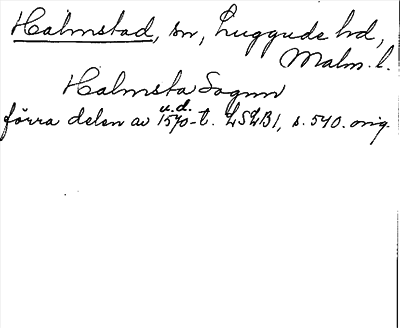 Halmstad, sn, Luggude hd,
Malm. l.
Halmsta Sognn
u.d.
förra delen av 1570-t. LSLB1, s. 540. orig.